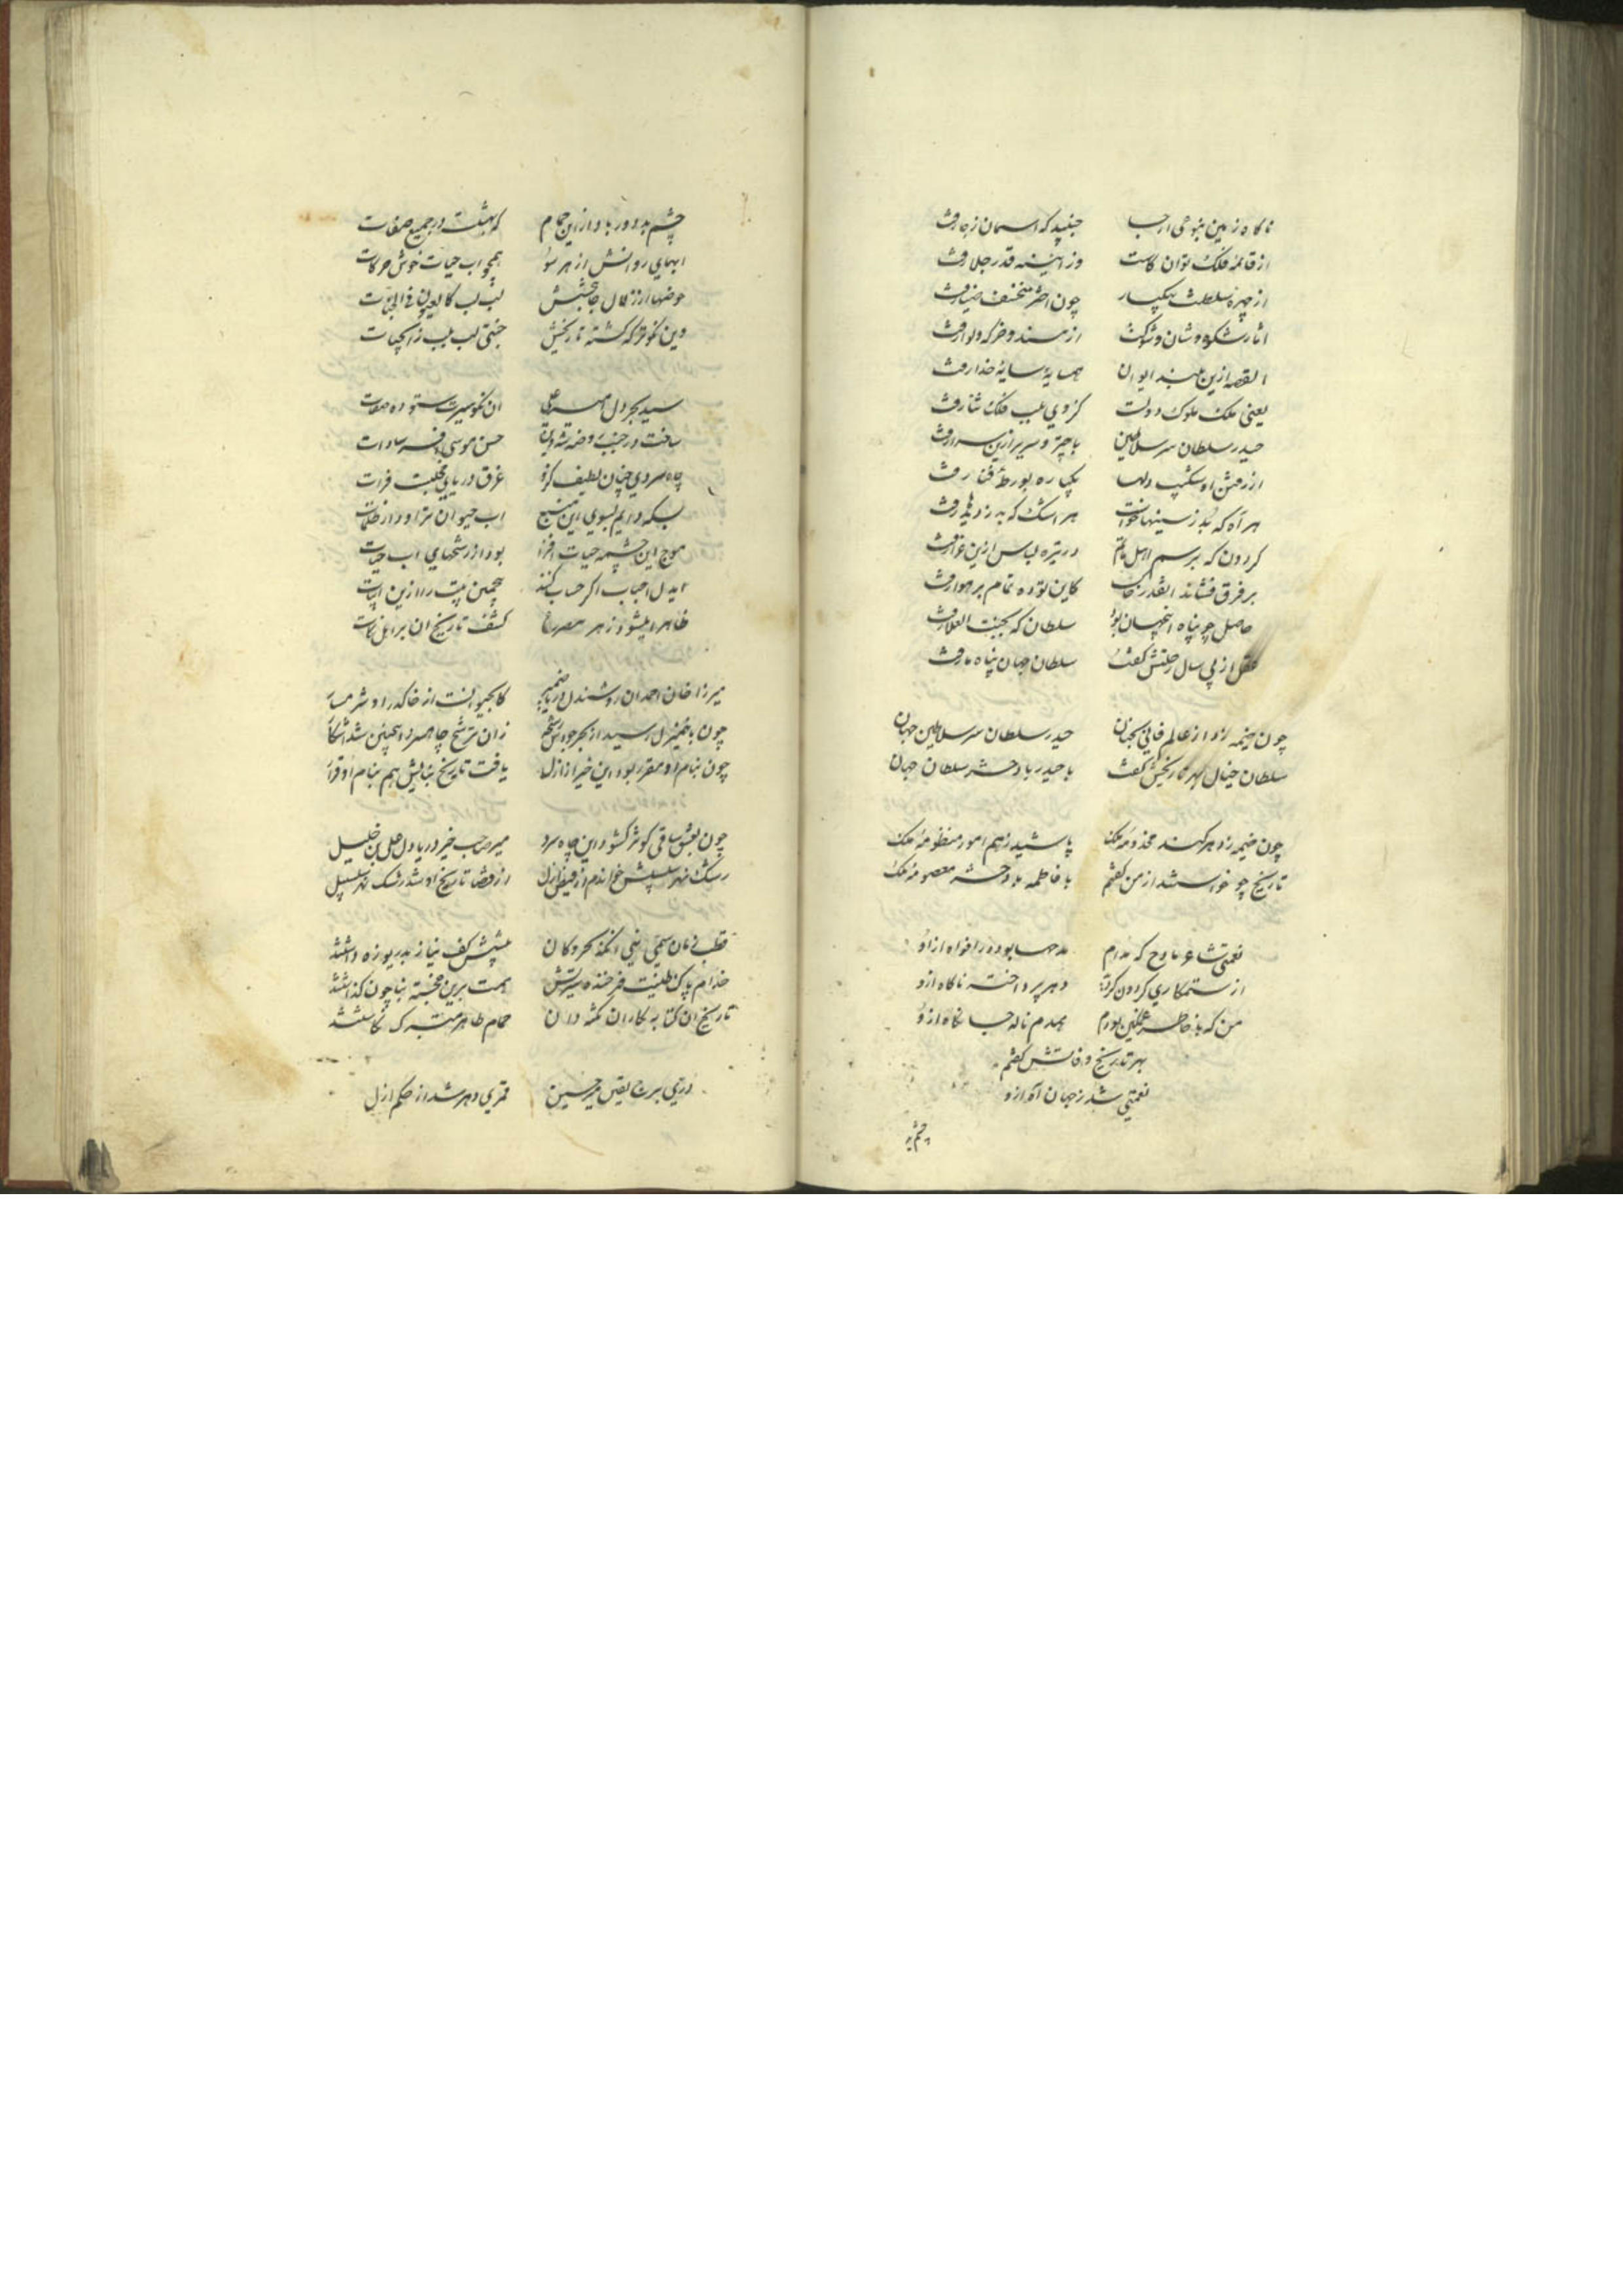 ناکاه زمین بنوعی ارجا جنبید که اسمان زجا رفت
از قائمه فلک توان کاست وز اینه قدر جلا رفت
از چهره سلطنت بیکبار چون اختر منخسف ضیا رفت
اثار شکوه و شان و شوکت از مسند و خرکه و لوا رفت
القصه ازین بلند ایوان همسایهٔ سایهٔ خدا رفت
یعنی ملک ملوک دولت کز وی بفلک ثنا رفت
حیدر سلطان سر سلاطین با چتر و سریر ازین سرا رفت
از رفتن او شکیب دلها یکباره بورطهٔ فنا رفت
هر آه که بد ز سینها خواست هر اشک که بد ز دیدها رفت
کردون که برسم اهل ماتم در تیره لباس ازین عزا رفت
بر فرق فشاند انقدر خاک کاین توده تمام بر هوا رفت
حاصل چو پناه انجهان بود سلطان که بجنت العلا رفت
عقل از پی سال رحلتش کفت سلطان جهان پناه ما رفت
چون خیمه زد از عالم فانی بجنان حیدر سلطان سر سلاطین جهان
سلطان خیال بهر تاریخش کفت با حیدر باد حشر سلطان جهان
چون خیمه زد هر کند مخدومهٔ ملک پاشید زهم امور منظومهٔ ملک
تاریخ چو خواستند از من کفتم با فاطمه باد حشر معصومهٔ ملک
نعمتی شاعر مادح که مدام مدحها بود در افواه ازو
از ستمکاری کردون دهر پرداخته ناکاه ازو
من که با خاطر غمکین بودم همدم ناله جانکاه ازو
بهر تاریخ وفاتش کفتم
نعمتی شد ز جهان آه ازو
چشم بد
چشم بد دور باد ازین حمام که بهشتست در جمیع صفات
ابهای روانش از هر سو همچو اب حیات خوش حرکات
حوضها از زلال جانبخشش لب بلب کالعیون فی الجنات
وین نکوتر که کشته تاریخش جنتی لب بلب ز آبحیات
سید بحر دل امیر علی ان نکو سیرت ستوده صفات
ساخت در جنب روضه شه دین حسن موسی افسر سادات
چاه سردی چنان لطیف کزو غرق دریای خجلتست فرات
بسکه دایم بسوی این منبع اب حیوان تراود از ظلمات
موج این چشمه حیات افزا بود از رشحهای اب حیات
ایدل احباب اکر حساب کنند همچنین بیت را ازین ابیات
ظاهرا میشود ز هر مصراع کشف تاریخ ان بر اهل نکات
میرزا خان احمد ان روشندل دریا ضمیر
چون با خمنزل رسید از بحر جودش رشح زان ترشح چاه سرد اینچنین شد اشکار
چون بنام او مقرر بود این خیر از ازل یافت تاریخ بنایش هم بنام او قرار
چون بعشق ساقی کوثر کشود این چاه سرد میر صاحب خیر دریا دل علی بن خلیل
رشک نهر سلسبیلش خواندم از فیض ازل از قضا تاریخ او شد رشک نهر سلسبیل
قطب زمان سمی نبی پیشش کف نیاز بدریوزه داشتند
خدام پاک طینت فرخنده سیرتش همت برین خجسته بنا چون کماشتند
تاریخ ان کتابه نکاران نکته دان حمام طاهر متبرک نکاشتند
دری برج یقین میر حسین قمری دهر شد از حکم ازل